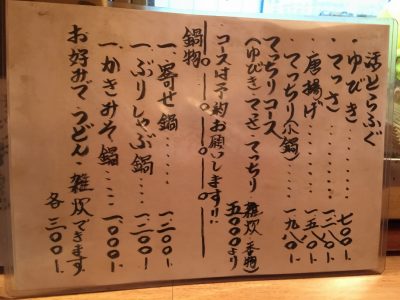 活とらふぐ
・ゆびき・・・・・・七〇〇、
・てっさ・・・・・・一、二八〇、
・唐揚げ・・・・・・一、五八〇、
・てっちり(小鍋)・・・・一、九八〇、
てっちりコース
(ゆびき)てっさ てっちり 雑炊(香物) 五〇〇〇より
コースは予約お願いします!!
鍋物
一、寄せ鍋・・・・・・一、二〇〇、
一、ぶりしゃぶ鍋・・・・一、二〇〇、
一、かきみそ鍋・・・・一、〇〇〇、
お好みで うどん・雑炊 できます 各三〇〇、